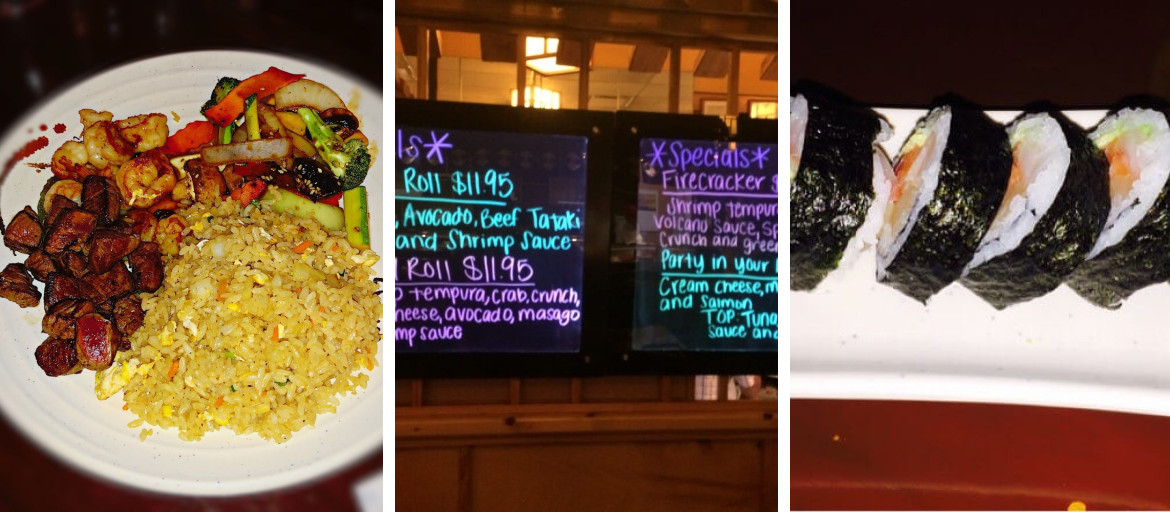 ls*
Roll $11.95
, Avocado, Beef Tataki
and Shrimp Sauce
Roll $11.95
tempura, crab, crunch,
heese, avocado, masago
mp sauce
*Specials*
Firecracker $
Shrimp tempur
volcano sauce, sp
crunch and gree
Party in your
Cream cheese, m
and salmon
TOP: Tuna
sauce and